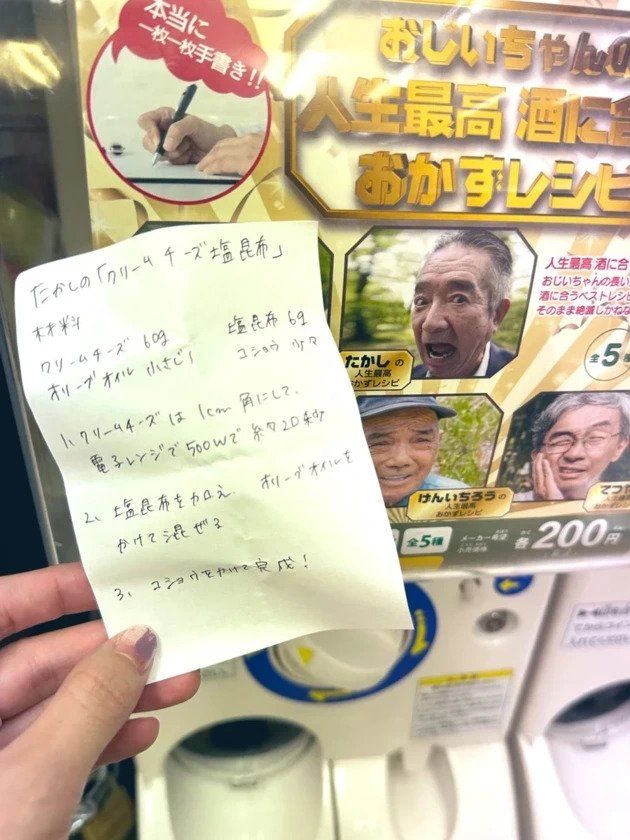 本当に
一枚一枚手書き!!
おじいちゃんの
人生最高 酒に合
おかずレシピ
たかしの「クリームチーズ塩昆布」
材料
クリームチーズ 60g 塩昆布 6g
オリーブオイル 小さじ1 コショウ 少々
1、クリームチーズは 1cm 角にして、
電子レンジで500Wで 約20秒
2、塩昆布を加え オリーブオイルを
かけて混ぜる
3、コショウをかけて完成!
人生最高 酒に合
おじいちゃんの長い
酒に合うベストレシピ
そのまま絶滅しかねな
全5種
たかしの
人生最高
おかずレシピ
けんいちろうの
人生最高
おかずレシピ
てつ
人生最高
おかずレシピ
全5種 メーカー希望
小売価格 各200円